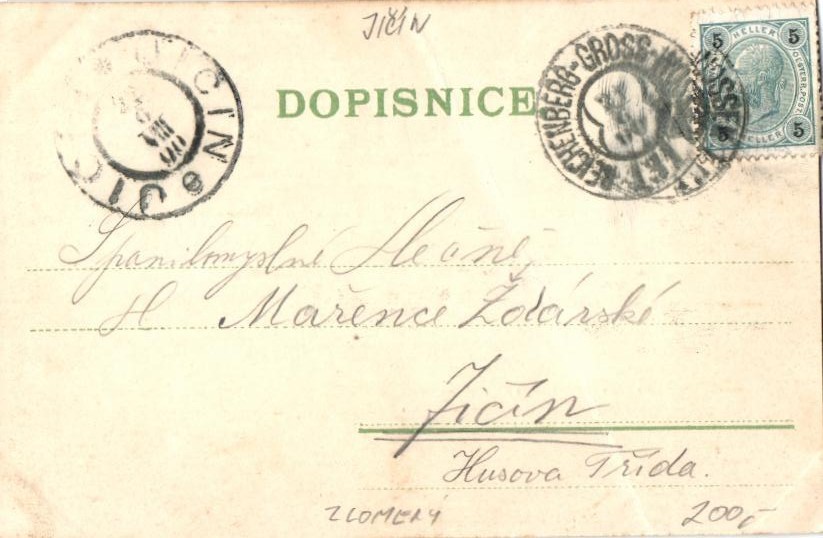 JIČÍN
JIČIN JIČ
DOPISNICE
REICHENBERG-GROSS-WOSSEK
5 HELLER 5
OESTERR. POST
5 HELLER 5
Spanilomyslné Slečně,
Sl Mařence Žďárské
Jičín
Husova Třída.
ZLOMENÝ
200,-